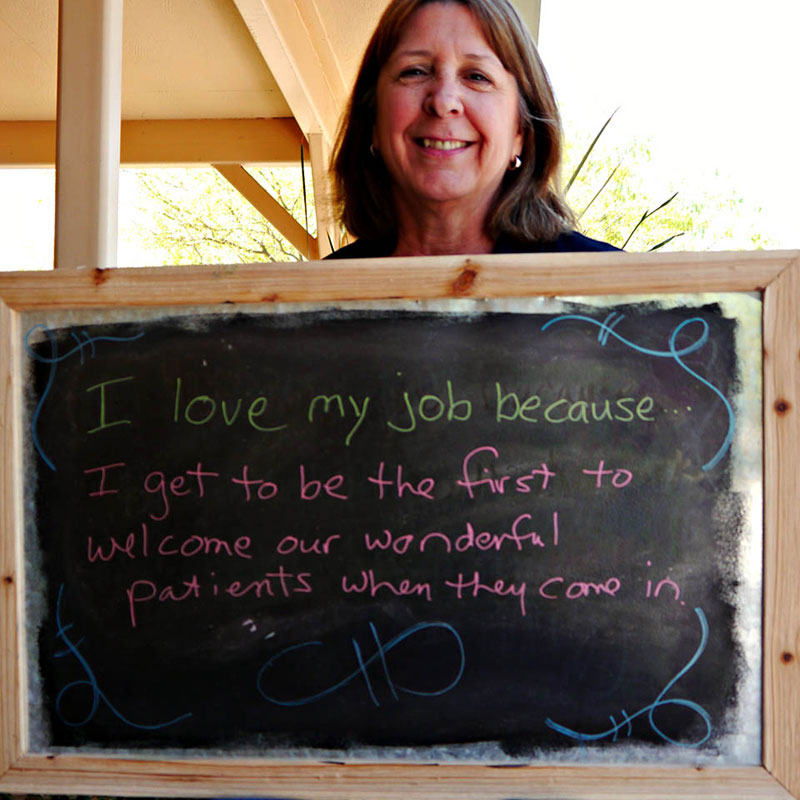 I love my job because...
I get to be the first to
welcome our wonderful
patients when they come in.